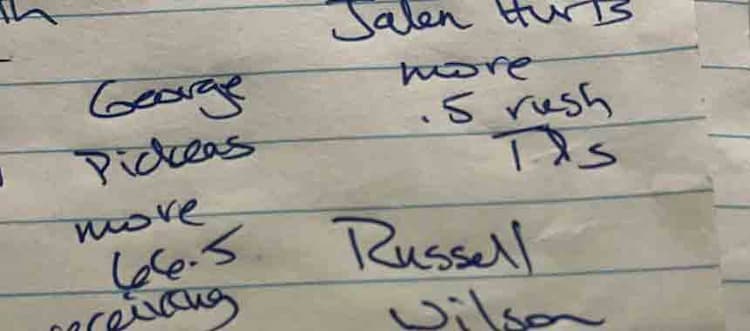 Jalen Hurts
more
.5 rush
TDs
Russell
Wilson
George
Pickens
more
66.5
receiving